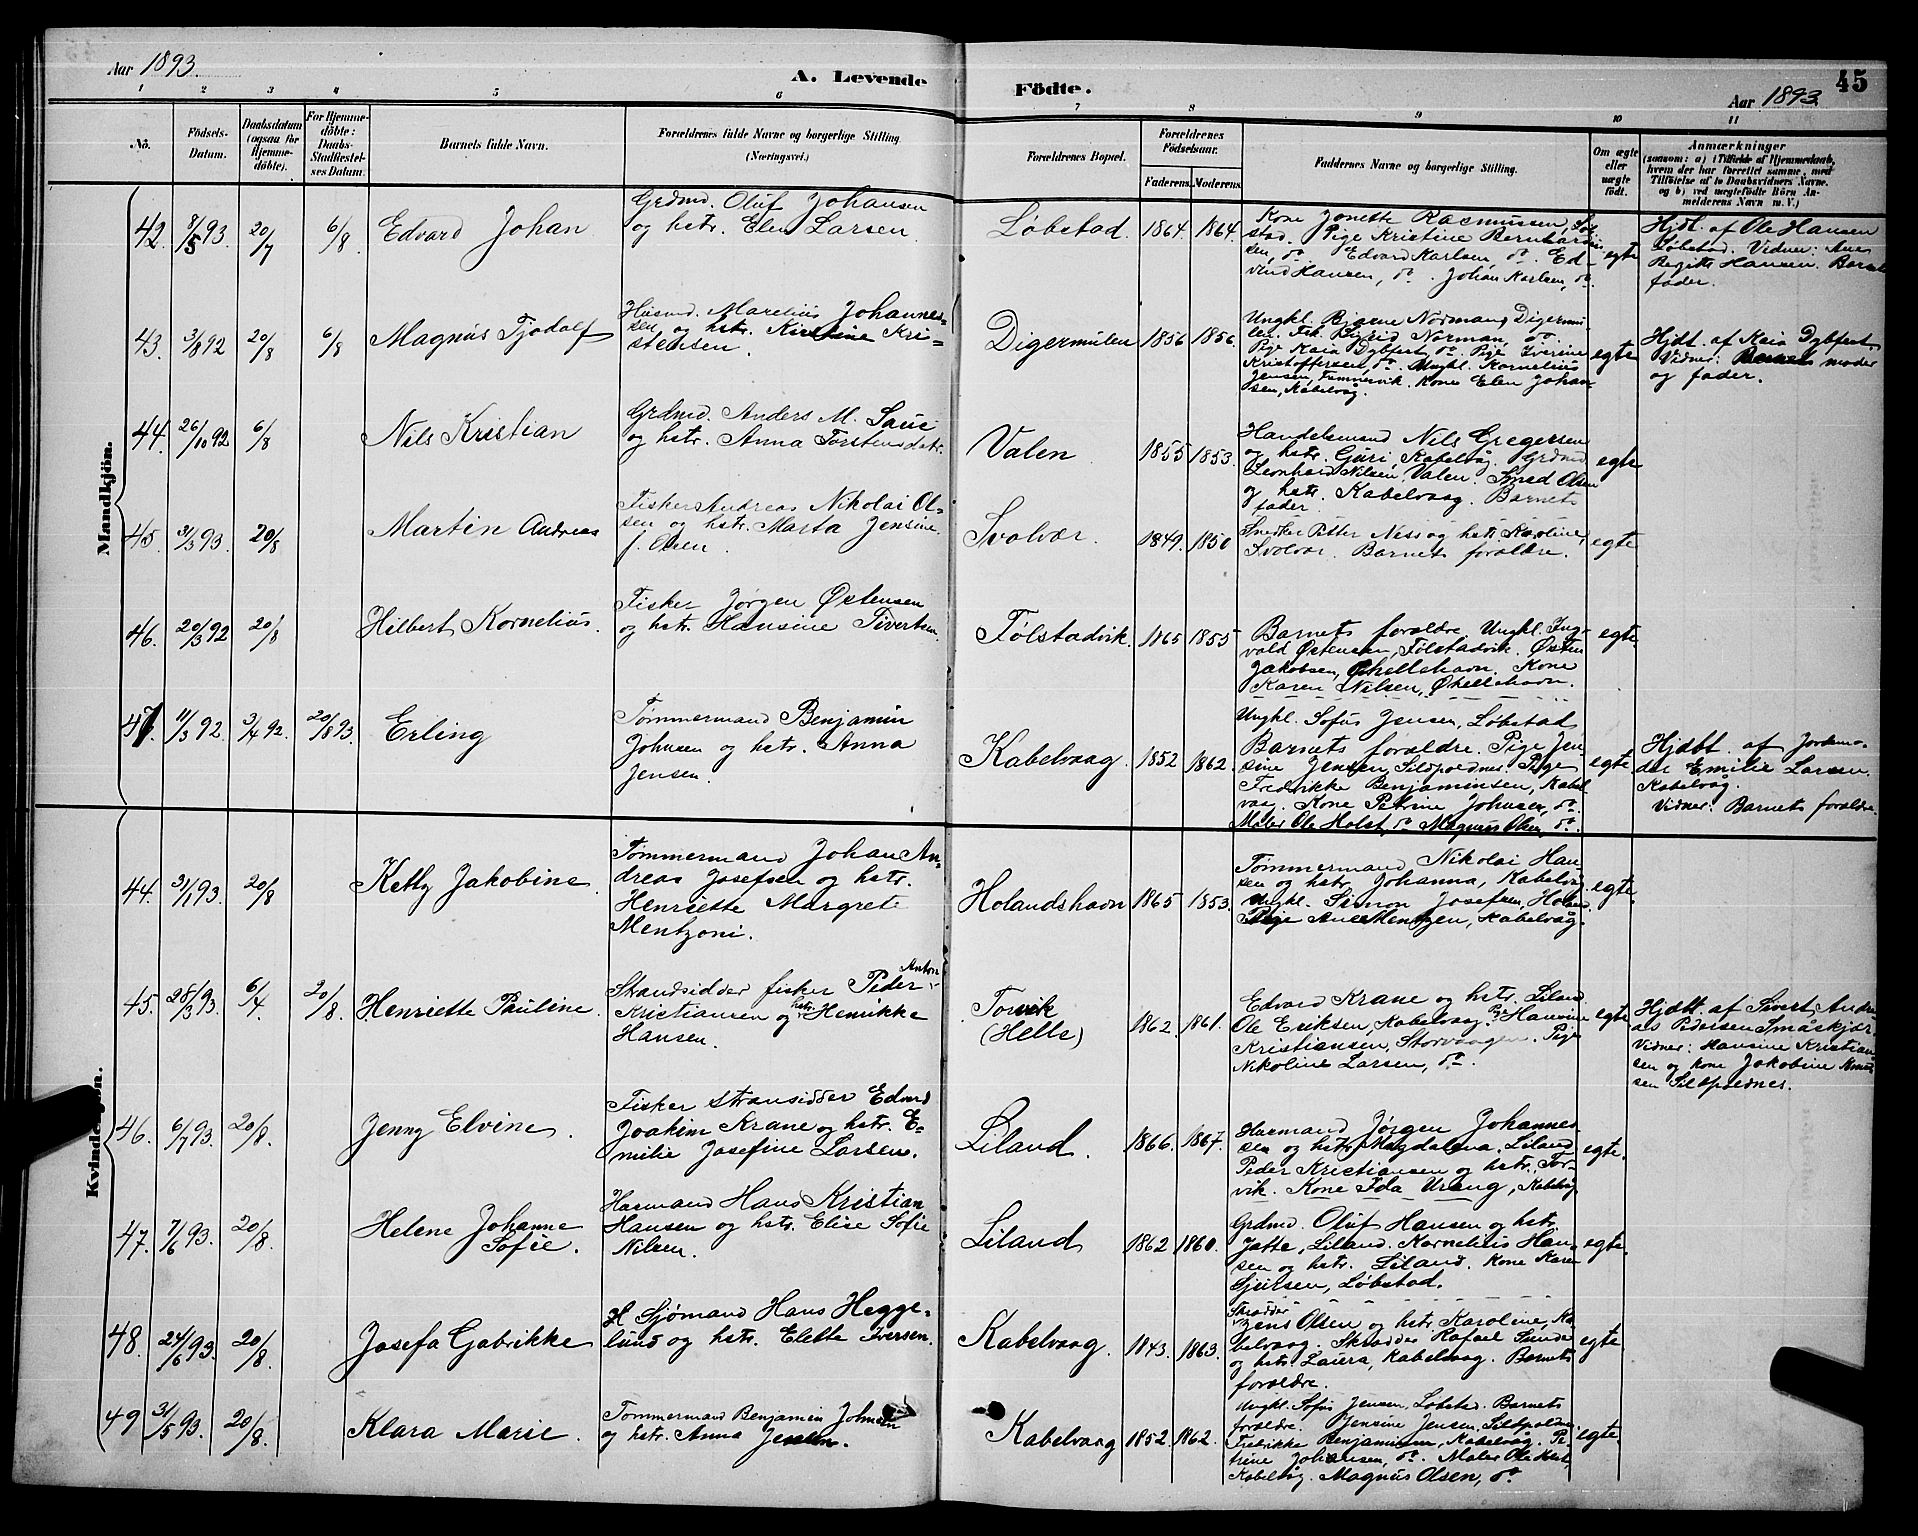 Aar 1893.
A. Levende
Födte.
Aar 1893.
45
1 2 3 4 5 6 7 8 9 10 11
No.
Födsels-
Datum.
Daabsdatum
(ogsaa for
Hjemme-
döbte).
For Hjemme-
döbte:
Daabs-
Stadfæstel-
ses Datum.
Barnets fulde Navn.
Forældrenes fulde Navne og borgerlige Stilling
(Næringsvei.)
Forældrenes Bopæl.
Forældrenes
Födselsaar.
Faderens.
Moderens.
Faddernes Navne og borgerlige Stilling.
Om ægte
eller
uægte
födt.
Anmærkninger
(saasom: a) i Tilfælde af Hjemmedaab,
hvem der har forrettet samme, med
Tilföielse af to Daabsvidners Navne,
og b) ved uægtefödte Börn An-
melderens Navn m. V.)
Mandkjön.
42. 8/5 93. 20/7 6/8
Edvard Johan
Grdmd. Oluf Johansen
og hstr. Elen Larsen.
Løbstad. 1864. 1864.
Kone Jonette Rasmussen, Løb-
stad. Pige Kristine Bernhard-
sen, do. Edvard Karlsen, do. Ed-
vind Hansen, do. Johan Karlsen, do.
egte
Hjdt. af Ole Hansen
Løbstad. Vidner: Ane
Begitte Hansen. Barnets
fader.
43. 3/8 92 20/8 6/8
Magnus Tjodolf
Husmd. Marelius Johannes-
sen og hstr. Kirstine Kri-
stensen.
Digermulen 1856 1856.
Ungkl. Bjarne Norman, Digermu-
len. Frk. Sigrid Norman, do.
Pige Kaia Dybfest, do. Pige Iverine
Kristoffersen, do. Ungkl. Kornelius
Jensen, Tømmervik. Kone Elen Johan-
sen, Kabelvåg.
egte
Hjdt. af Kaia Dybfest.
Vidner: Barnets moder
og fader.
44. 26/10 92 6/8
Nils Kristian
Grdmd. Anders M. Saue
og hstr. Anna Torstensdatr.
Valen 1855 1853.
Handelsmand Nils Gregersen
og hstr. Guri, Kabelvåg. Grdmd
Leonhard Nilsen, Valen. Smed Olsen
og hstr. Kabelvaag. Barnets
fader.
egte
45. 31/3 93. 20/8
Martin Andreas
Fisker Andreas Nikolai Ol-
sen og hstr. Marta Jensine
f. Olsen.
Svolvær. 1849. 1850
Snedker Petter Ness og hstr. Karoline,
Svolvær. Barnets forældre.
egte
46. 20/3 92 20/8
Hilbert Kornelius.
Fisker Jørgen Østensen
og hstr. Hansine Sivertsen.
Følstadvik. 1865 1855
Barnets forældre. Ungkl. Ing-
vald Østensen, Følstadvik. Østen
Jakobsen, Øhellehavn. Kone
Karen Nilsen, Øhellehavn.
egte.
47. 11/3 92. 3/4 92. 20/8 93.
Erling
Tømmermand Benjamin
Johnsen og hstr. Anna
Jensen.
Kabelvaag. 1852 1862.
Ungkl. Sofus Jensen, Løbstad
Barnets forældre. Pige Jen-
sine Jensen, Sildpoldnes. Pige
Fredrikke Benjaminsen, Kabel-
vaag. Kone Petrine Johnsen, do.
Maler Ole Holst, do. Magnus Olsen, do.
egte
Hjdbt. af Jordemo-
der Emilie Larsen
Kabelvåg.
Vidner: Barnets forældre.
Kvindekjön.
44. 31/1 93. 20/8
Ketty Jakobine.
Tømmermand Johan An-
dreas Josefsen og hstr.
Henriette Margrete
Mentzoni.
Holandshavn 1865 1853.
Tømmermand Nikolai Han-
sen og hstr. Johanna, Kabelvåg.
Ungkl. Simon Josefsen, Holand.
Pige Ane Mentzen, Kabelvåg.
egte.
45. 28/3 93. 6/4 20/8.
Henriette Pauline.
Strandsidder fisker Peder Anton
Kristiansen og hstr. Henrikke
Hansen.
Torvik
(Helle) 1862. 1861.
Edvard Krane og hstr. Liland.
Ole Eriksen, Kabelvaag. Pige Hansine
Kristiansen, Storvaagen. Pige
Nikoline Larsen, do.
egte.
Hjdtt. af Sivert Andre-
as Pedersen Småskjær
Vidner: Hansine Kristian-
sen og kone Jakobine
sen Sildpoldnes.
46. 6/7 93. 20/8.
Jenny Elvine.
Fisker strandsidder Edvard
Joakim Krane og hstr. E-
milie Josefine Larsen.
Liland. 1866. 1867.
Husmand Jørgen Johannes-
sen og hstr. Magdalena, Liland
Peder Kristiansen og hstr. Tor-
vik. Kone Ida Urang, Kabelvåg
egte.
47. 7/6 93. 20/8.
Helene Johanne
Sofie.
Husmand Hans Kristian
Hansen og hstr. Elise Sofie
Nilsen.
Liland 1862 1860.
Grdmd. Oluf Hansen og hstr.
Jatte, Liland. Kornelius Han-
sen og hstr. Liland. Kone Karen
Sjursen, Løbstad.
egte.
48. 24/6 93. 20/8.
Josefa Gabrikke
Sjømand Hans Hegge-
lund og hstr. Elette Iversen.
Kabelvaag. 1843. 1863.
Skrædder
Jens Olsen og hstr. Karoline, Ka-
belvaag. Skrædder Rafael Sunde
og hstr. Laura, Kabelvaag. Barnets
forældre.
egte.
49 31/5 93. 20/8.
Klara Marie.
Tømmermand Benjamin Johnsen
og hstr. Anna Jensen.
Kabelvaag 1852. 1862.
Ungkl. Sofus Jensen, Løbstad. Barnets
forældre. Jensine Jensen, Sildpoldnes.
Fredrikke Benjaminsen, Kabelvåg. Pe-
trine Johnsen, do. Maler Ole Holst,
Kabelvåg. Magnus Olsen, do.
egte.